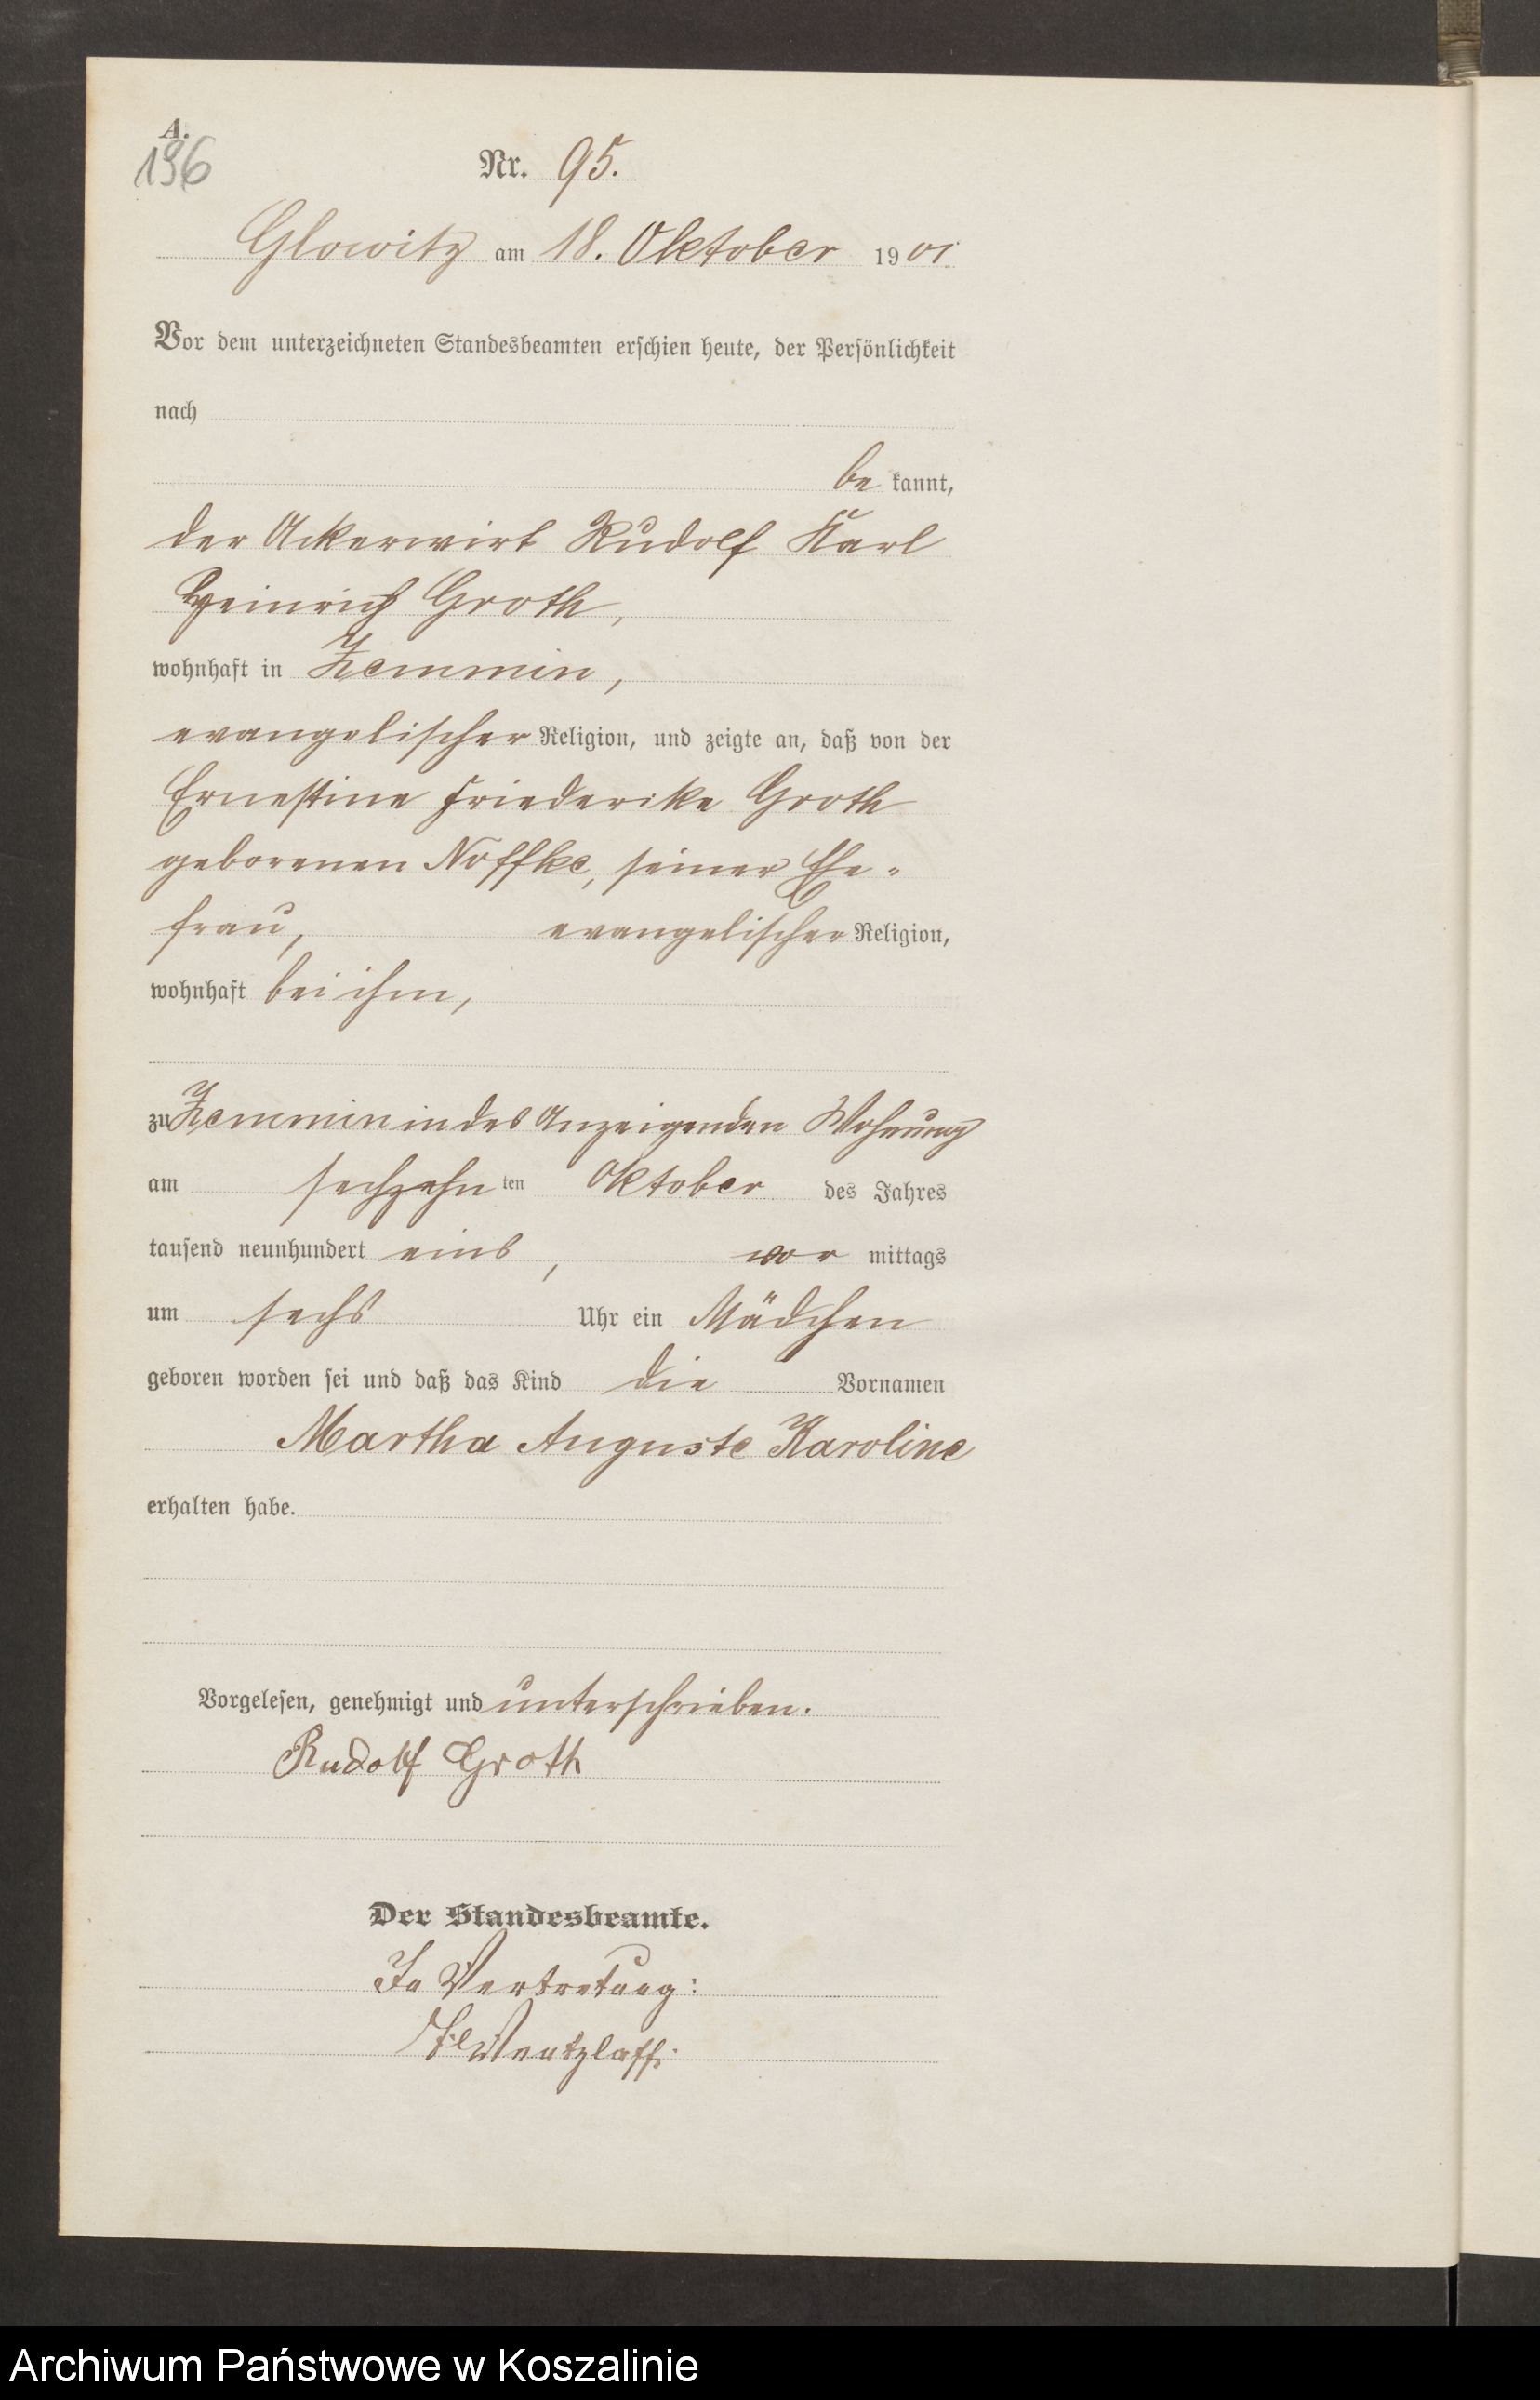 A.
196
Nr. 95.
Glowitz am 18. Oktober 1901.
Vor dem unterzeichneten Standesbeamten erschien heute, der Persönlichkeit
nach
be kannt,
der Ackerwirt Rudolf Karl
Heinrich Groth,
wohnhaft in Zemmin,
evangelischer Religion, und zeigte an, daß von der
Ernestine Friederike Groth
geborenen Noffke, seiner Ehe-
frau, evangelischer Religion,
wohnhaft bei ihm,
zu Zemmin in des Anzeigenden Wohnung
am sechzehn ten Oktober des Jahres
tausend neunhundert eins, vor mittags
um sechs Uhr ein Mädchen
geboren worden sei und daß das Kind die Vornamen
Martha Auguste Karoline
erhalten habe.
Vorgelesen, genehmigt und unterschrieben.
Rudolf Groth
Der Standesbeamte.
In Vertretung:
Wentzlaff.
Archiwum Państwowe w Koszalinie